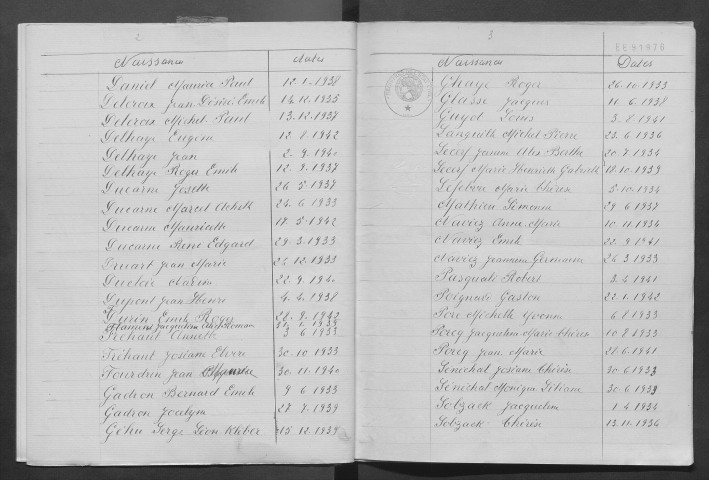 2
Naissance Dates
Daniel Maurice Paul 12.1.1938
Delcroix Jean Désiré Emile 14.12.1935
Delcroix Michel Paul 13.12.1937
Delhaye Eugène 12.8.1942
Delhaye Jean 2.9.1940
Delhaye Roger Emile 12.9.1937
Ducarne Josette 26.5.1937
Ducarne Marcel Achille 24.6.1933
Ducarne Mauricette 18.5.1942
Ducarne René Edgard 29.3.1933
Druart Jean Marie 26.12.1933
22.9.1940
Dupont Jean Henri 4.4.1938
Durin Emile Roger 28.9.1942
Flament Jacqueline
Fréhaut Annette 3.6.1933
Fréhaut Josiane Elvire 30.10.1933
Fourdrin Jean 30.11.1940
Gadron Bernard Emile 9.6.1933
Gadron Jocelyn 27.7.1939
Géhu Serge Léon Kléber 15.12.1939
3
Naissance Dates
Ghaye Roger 26.10.1933
Glasse Jacques 11.6.1938
Guyot Louis 3.8.1941
Michel Pierre 23.6.1936
Lecerf Janine Alix Berthe 20.7.1934
Lecerf Marie Henriette Gabrielle 18.10.1939
Lefebvre Marie Thérèse 5.10.1934
Mathieu Simonne 29.6.1937
Naviez Anne Marie 10.11.1936
Naviez Emile 22.9.1941
Naviez Jeannine Germaine 26.3.1933
Pasquali Robert 3.4.1941
Poignave Gaston 22.1.1942
Père Michelle Yvonne 6.8.1933
Percq Jacqueline Marie Thérèse 10.8.1933
Percq Jean Marie 28.6.1941
Sénéchal Josiane Thérèse 30.6.1933
Sénéchal Monique Liliane 30.6.1933
Sobzack Jacqueline 1.4.1934
Sobzack Thérèse 13.11.1936